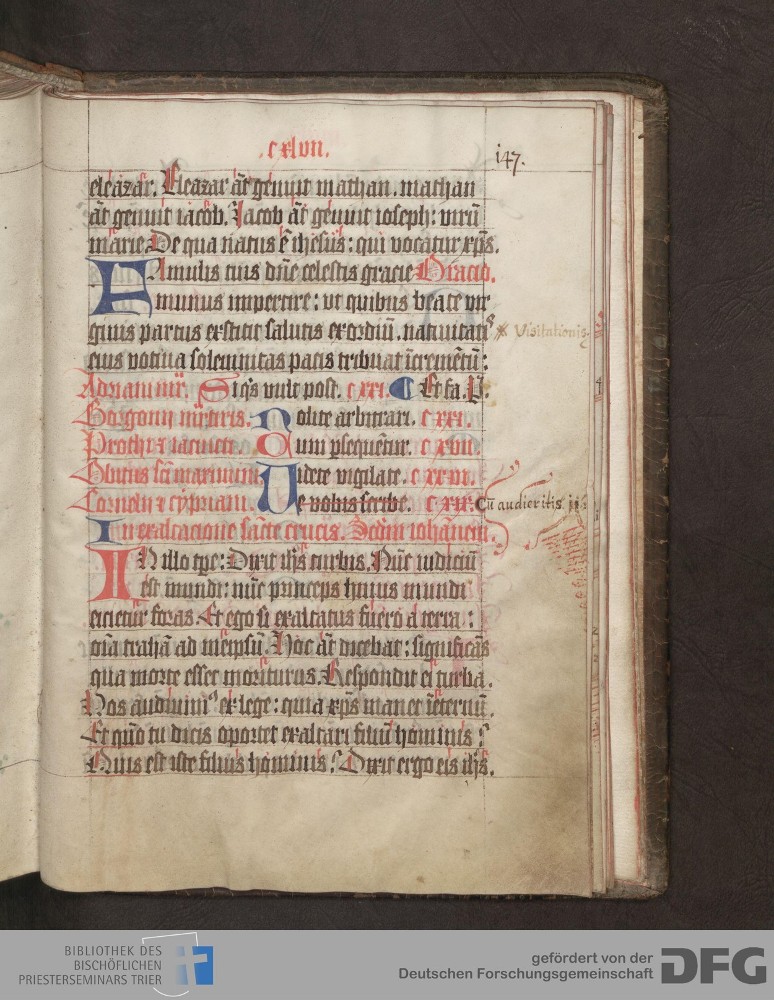 .cxlvii.
147.
eleazar. Eleazar āt genuit mathan. mathan
āt genuit iacob. Jacob āt genuit ioseph: virū
marie De qua natus ē ihesus: qui vocatur xp̄s.
Famulis tuis dn̄e celestis gracie Oracio.
munus impertire: vt quibus beate vir
ginis partus exstitit salutis exordiū. natiuitatꝰ
✕ Visitationis.
eius votiua solemnitas pacis tribuat īcremētū:
Adriani mr̄. Siq̄s vult post. cxxi. Et fa. P̄.
Gorgonii mr̄tiris. Nolite arbitrari. cxxi.
Prothi ⁊ iacincti. Cum ꝑsequētur. cxvii.
Videte vigilate.
Cornelii ⁊ cypriani. Ve vobis scribe. Cū audieritis
In exaltacione sācte crucis. Scd̄m iohānem.
IN illo tp̄e: Dixit ih̄s turbis. Nūc iudiciū
est mundi: nūc princeps huius mundi
eicietur foras. Et ego si exaltatus fuero a terra:
oīa trahā ad meipsū. Hoc āt dicebat: significās
qua morte esset moriturus. Respondit ei turba.
Nos audiuimꝰ ex lege: quia xp̄s manet īeternū.
Et quō tu dicis oportet exaltari filiū hominis?
Quis est iste filius hominis? Dixit ergo eis ih̄s.
BIBLIOTHEK DES
BISCHÖFLICHEN
PRIESTERSEMINARS TRIER
gefördert von der
Deutschen Forschungsgemeinschaft DFG